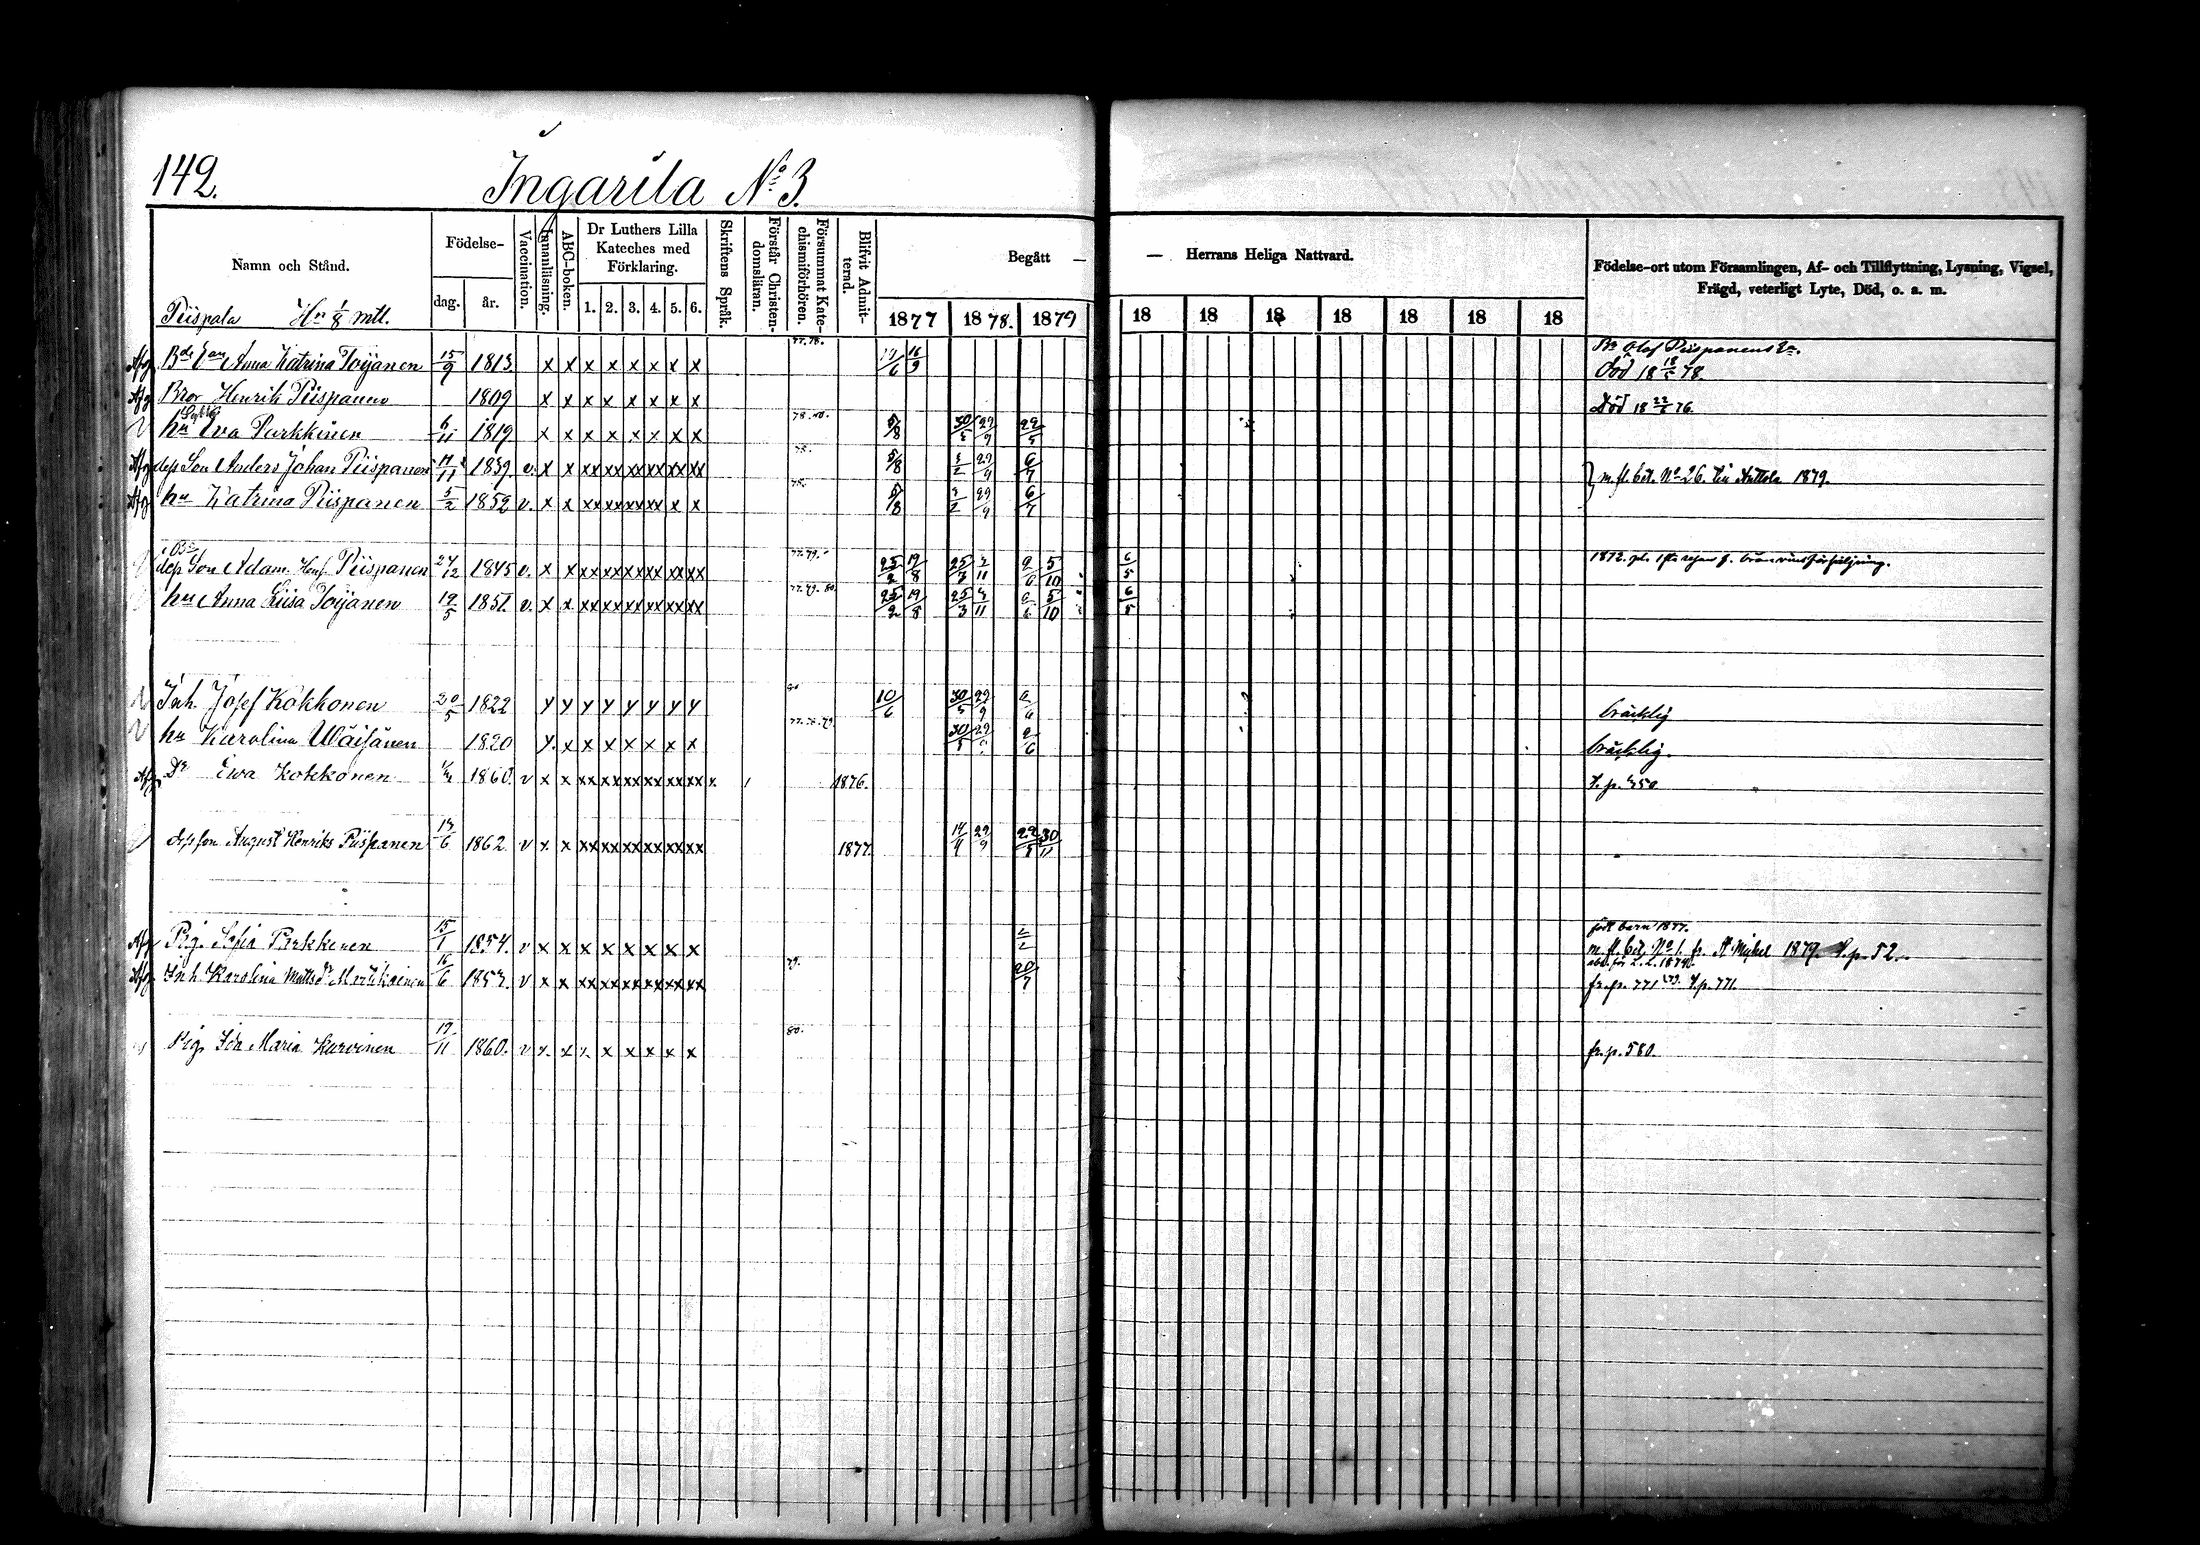 142.
Ingarila No 3.
Namn och Stånd.
Födelse-
dag.
år.
Vaccination.
Innanläsning.
ABC-boken.
Dr Luthers Lilla
Kateches med
Förklaring.
1. 2. 3. 4. 5. 6.
Skriftens Språk.
Förstår Christen-
domsläran.
Försummat Kate-
chismiförhören.
Blifvit Admit-
terad.
Begått —
— Herrans Heliga Nattvard.
1877 1878. 1879
18 18 18 18 18 18 18
Födelse-ort utom Församlingen, Af- och Tillflyttning, Lysning, Vigsel,
Frägd, veterligt Lyte, Död, o. a. m.
Piispala Hn 1/8 mtl.
Afg Anna Katrina Toijanen 15/9 1813 x x x x x x x x 77.78. 16/9 Olof Piispanens
Död 18 78.
Afg Bror Henrik Piispanen 1809 x x x x x x x x Död 18 22/5 76.
hu Eva Parkkinen 6/11 1819 x x x x x x x x 5/8 30/5 29/9 22/5
Afg Son Anders Johan Piispanen 1839 v. x x xx xx xx xx xx xx 78. 5/8 29/9 6/7 m. fl. bet. No 26. till Anttola 1879.
Afg hu Katrina Piispanen 5/2 1852 v. x x xx xx xx xx x x 78. 5/8 29/9 6/7
Son Adam Piispanen 24/12 1845 v. x x xx xx xx xx xx xx 77.79. 25/2 19/8 25/3 5/10 6/5 1872.
hu Anna Liisa Toijanen 19/5 1851 v. x x xx xx xx xx xx xx 77.79.80. 25/2 19/8 25/3 5/10 6/5
Inh. Josef Kokkonen 20/5 1822 y y y y y y y y 80 10/6 30/5 29/9 bräcklig
hu Karolina Wäisänen 1820 y. x x x x x x x 30/5 29 2/6 bräcklig.
Afg Dr Ewa Kokkonen 1860. v x x xx xx xx xx xx xx x. 1876. T. p. 750
son August Henriks Piispanen 13/6 1862. v x. x xx xx xx xx xx xx 1877. 14/4 29/9 22/5 30/11
född barn 1877.
Afg Pig. Sofia Parkkinen 15/1 1854. v x x x x x x x x m. fl. bet. No 1. fr. St Michel 1879. T. p. 52.
Afg Inh. Karolina Mattsdr Martikainen 16/6 1857. v x x xx xx xx xx xx xx 79. 20/7 fr. p. 771 T. p. 771.
Pig. Ida Maria Karvinen 19/11 1860. v x. x x. x x x x x 80. fr. p. 580.